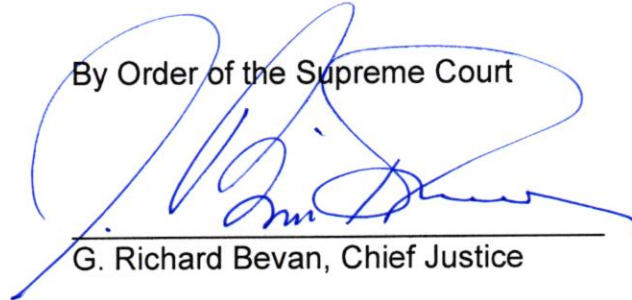 By Order of the Supreme Court
G. Richard Bevan, Chief Justice